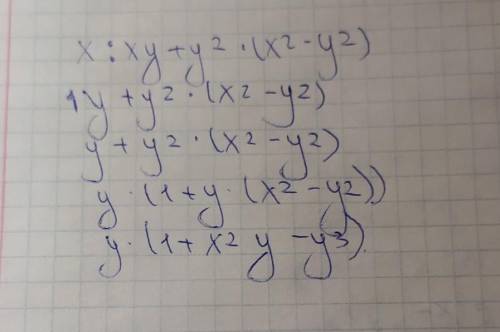 x : xy + y² · (x² - y²)
1y + y² · (x² - y²)
y + y² · (x² - y²)
y · (1 + y · (x² - y²))
y · (1 + x² y - y³)